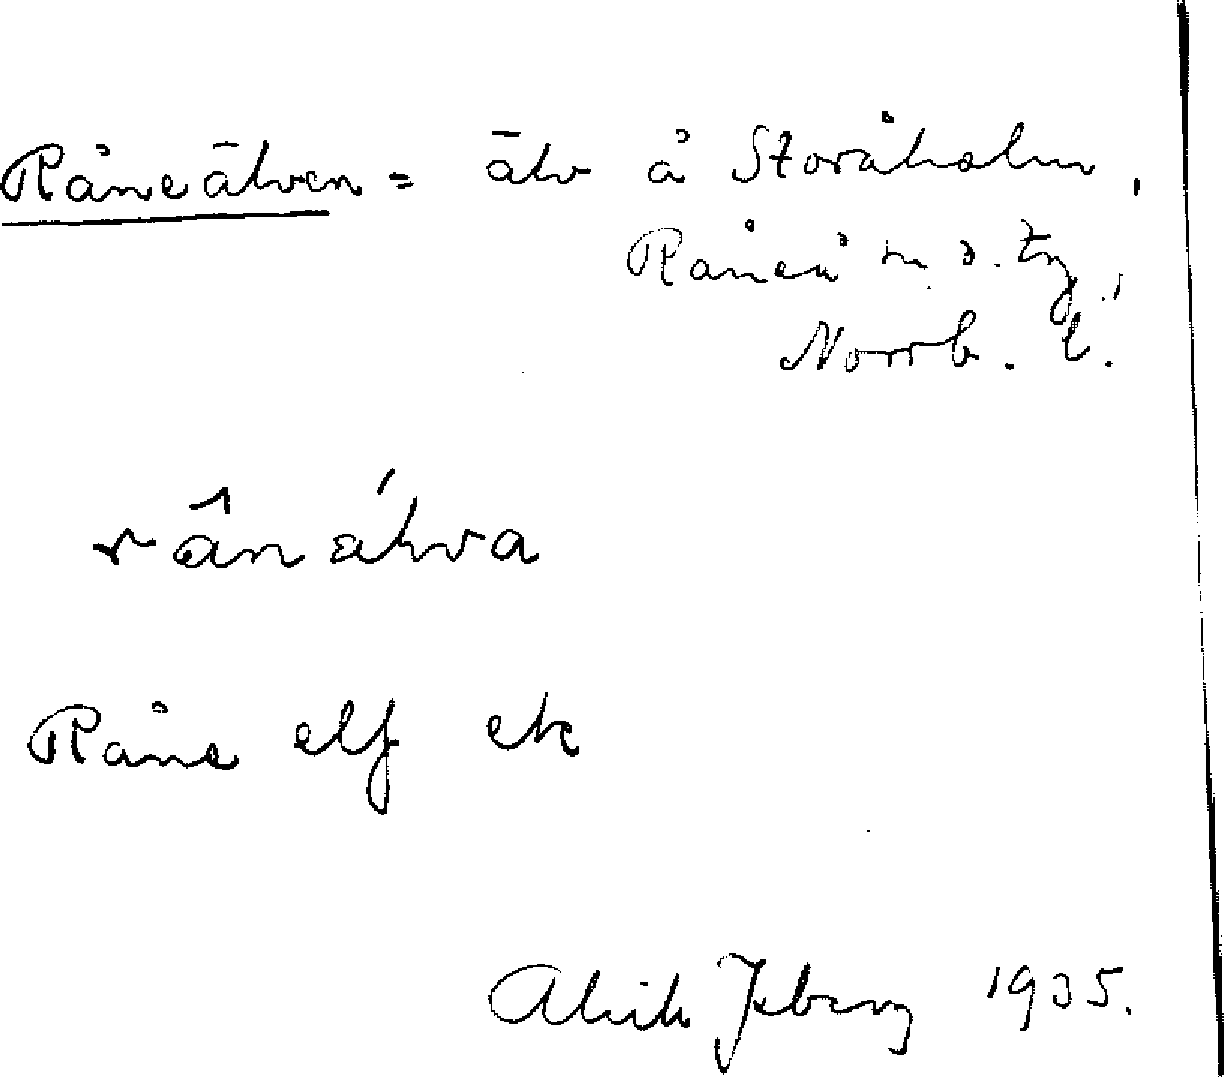 Råneälven = älv å Storåholm,
Råneå sn o. tg.,
Norrb. l.
rânálva
Råne elf ek
Alrik Isberg 1935.